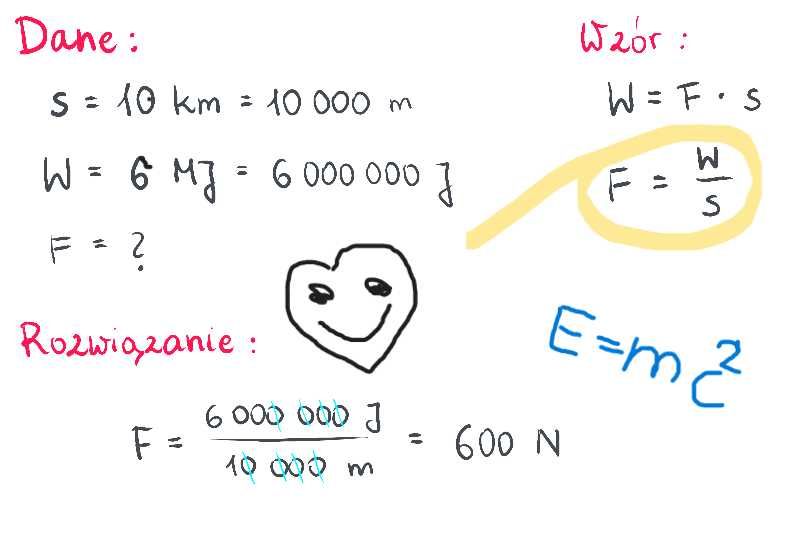 Dane:
s = 10 km = 10 000 m
W = 6 MJ = 6 000 000 J
F = ?
Wzór:
W = F · s
F = W/s
Rozwiązanie:
F = 6 000 000 J / 10 000 m = 600 N
E=mc²